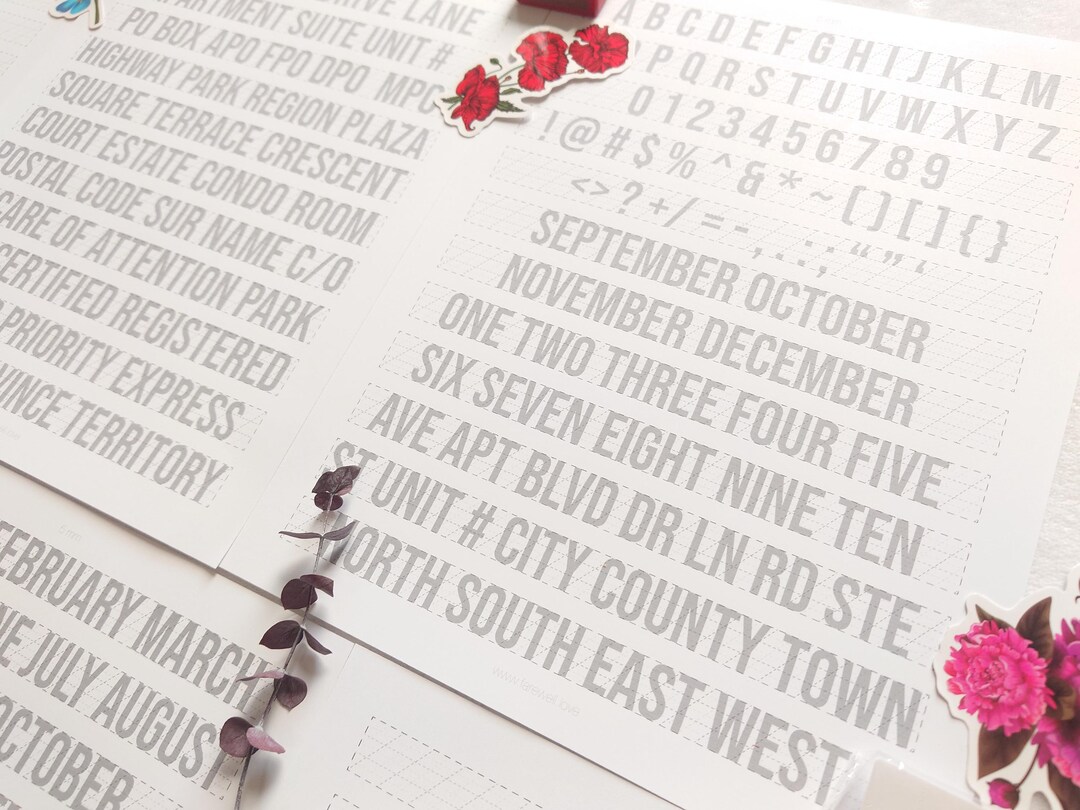 DRIVE LANE
APARTMENT SUITE UNIT #
PO BOX APO FPO DPO MPO
HIGHWAY PARK LEGION PLAZA
SQUARE TERRACE CRESCENT
COURT ESTATE CONDO ROOM
POSTAL CODE SUR NAME C/O
CARE OF ATTENTION PARK
CERTIFIED REGISTERED
PRIORITY EXPRESS
VINCE TERRITORY
A B C D E F G H I J K L M
P Q R S T U V W X Y Z
0 1 2 3 4 5 6 7 8 9
! @ # $ % ^ & * ~ ( ) [ ] { }
< > ? + / = - , . : ; “ ” ‘
SEPTEMBER OCTOBER
NOVEMBER DECEMBER
ONE TWO THREE FOUR FIVE
SIX SEVEN EIGHT NINE TEN
AVE APT BLVD DR LN RD STE
ST UNIT # CITY COUNTY TOWN
NORTH SOUTH EAST WEST
FEBRUARY MARCH
NE JULY AUGUST
OCTOBER